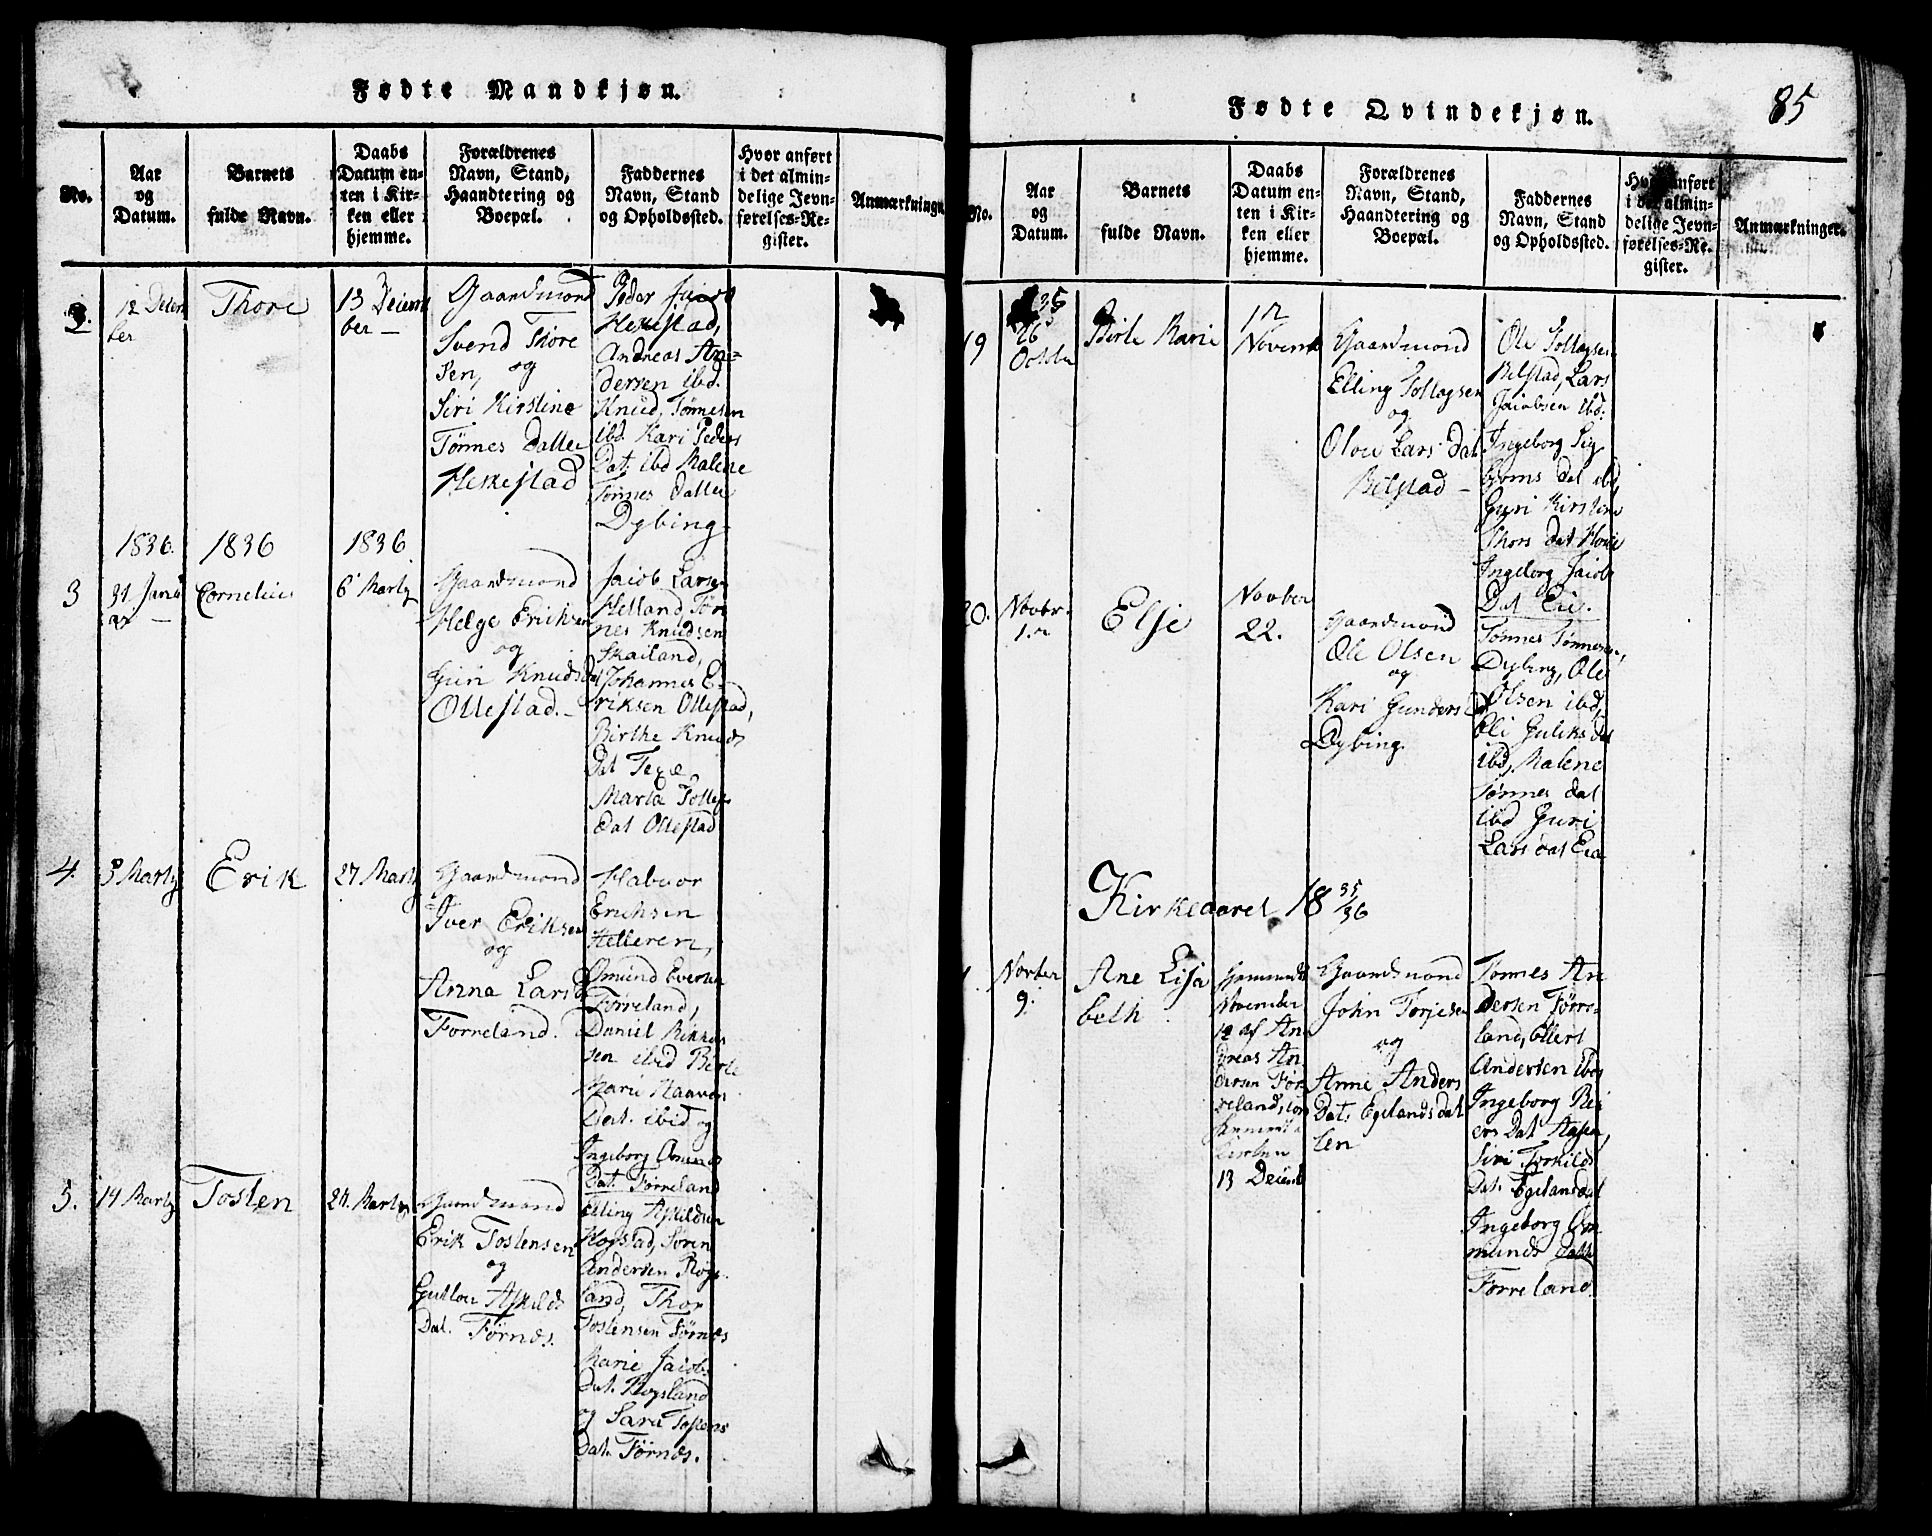 Fødte Mandkjøn.
No.
Aar
og
Datum.
Barnets
fulde Navn.
Daabs
Datum en-
ten i Kir-
ken eller
hjemme.
Forældrenes
Navn, Stand,
Haandtering og
Boepæl.
Faddernes
Navn, Stand
og Opholdssted.
Hvor anført
i det almin-
delige Jevn-
førelses-Re-
gister.
Anmærkninger
12 Decem
ber
Thore
13 Decem
ber —
Gaardmand
Svend Thore
Sen, og
Siri Kirstine
Tønnes Datter
Heskestad
Peder
Heskestad,
Andreas An-
dersen ibd.
Knud Tønnesen
ibd. Kari Peders
Dat. ibd Malene
Tønnes Datter
Dybing.
1836.
1836
1836
3
31 Janu
ar —
Cornelius
6 Marty
Gaardmand
Helge Eriksen
og
Guri Knuds Dat
Ollestad. —
Jacob Larsen
Helland, Tøn
nes Knudsen
Skailand,
Johannes E-
riksen Ollestad,
Birthe Knuds
Dat
Marta Tollefs
Dat Ollestad
4.
Marty
Erik
27 Marty
Gaardmand
Iver Eriksen
og
Anna Lars D
Førreland.
Habvor
Erichsen
Helleren,
Omund Eversen
Førreland,
Daniel
sen ibid Berte
Marie
Dat. ibid og
Ingeborg Omunds
Dat. Førreland
5.
14 Marty
Tosten
27. Marty
Gaardmand
Erik Tostensen
og
Gutlou Askilds
Dat. Førnes.
Elling Askildsen
Hogstad, Søren
Andersen Rogs
land, Thor
Tostensen Førnes
Marie Jacobs
Dat. Rogsland
og Sara Tostens
Dat. Førnes.
Fødte Qvindekjøn.
85
No.
Aar
og
Datum.
Barnets
fulde Navn.
Daabs
Datum en-
ten i Kir-
ken eller
hjemme.
Forældrenes
Navn, Stand,
Haandtering og
Boepæl.
Faddernes
Navn, Stand
og Opholdssted.
Hvor anført
i det almin-
delige Jevn-
førelses-Re-
gister.
Anmærkninger.
19
35
26
Octbr
Birte Marie
Novemb
Gaardmand
Elling Tollagsen
og
Olou Lars Dat
Belstad —
Ole Tollagsen
Belstad, Lars
Jacobsen ibd.
Ingeborg Sig
bjørns Dat ibd
Guri Kirstine
Thors Dat
Ingeborg Jacobs
Dat Eie.
20.
Novbr.
Elsje
Novber
22.
Gaardmand
Ole Olsen
og
Kari Gunders D
Dybing.
Tønnes Tønnesen,
Dybing, Ole
Olsen ibd,
Eli Guliks Dat
ibd, Malene
Tønnes Dat
ibd Guri
Lars Dat Eia
Kirkeaaret 18 35/36
Novber
9.
Ane Lisa
beth
November
12 af An
dreas An
dersen Før
reland,
13 Decemb
Gaardmand
John Torjesen
og
Anne Anders
Dat. Egelandsdal
len
Tønnes An
dersen Førre-
land, Ellert
Andersen ibd
Ingeborg Rei
ers Dat
Siri Torkilds
Dat. Egelansdal
Ingeborg Om
munds Datt
Førreland